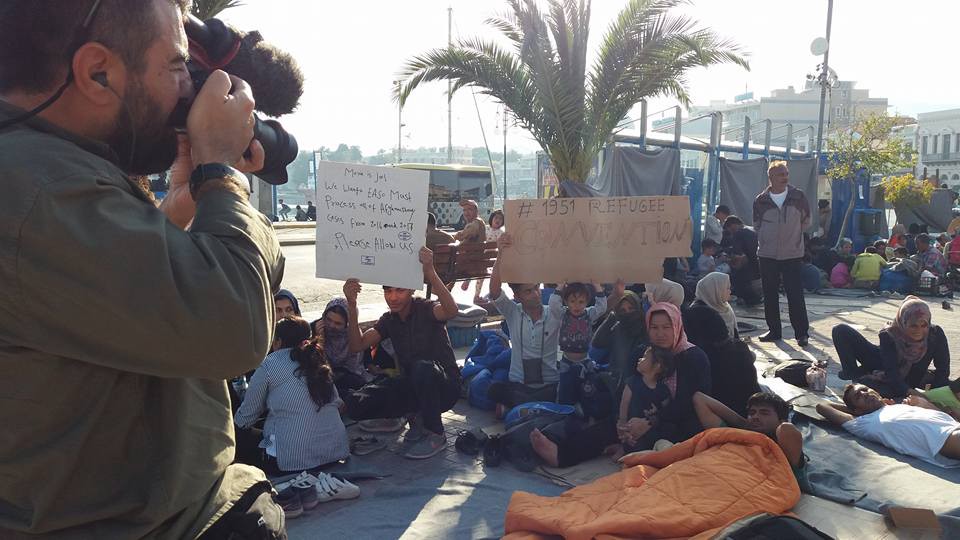 Moria is Jail
We Want EASO Must
Process all of Afghanistan
cases from 2016 and 2017
Please Allow us
# 1951 REFUGEE
CONVENTION